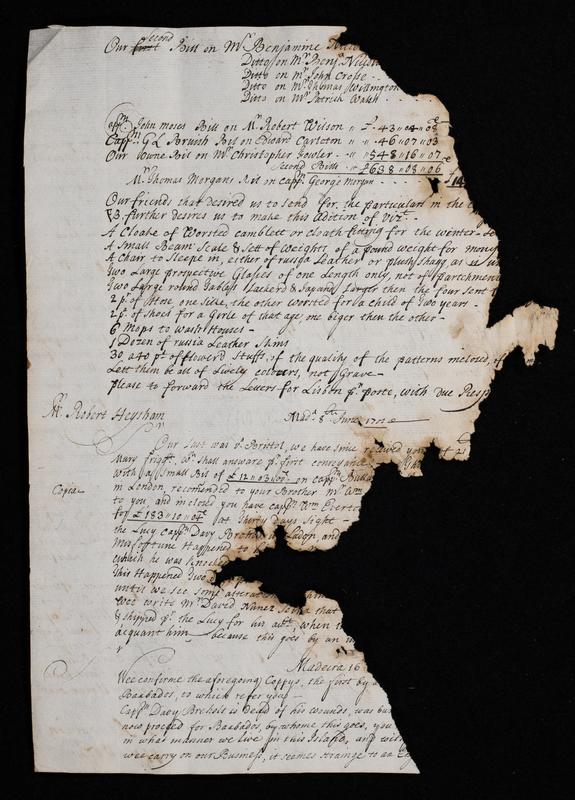 Our second first Bill on Mr Benjamine
Ditto on Mr Benj.
Ditto on Mr John Crosse
Ditto on Mr Thomas Willington
Ditto on Mr Patrick Walsh
John Moses Bill on Mr Robert Wilson £ 43
Capt. G L Bill on Edward Carleton 46 07 03
Our Owne Bill on Mr Christopher Fowler 548 16 07
Second Bills £638 08 06
Mr Thomas Morgans Bill on Capt. George Morgan
Our friends that desired us to send for the particulars in the
further desires us to make this adition of Vizt
A Cloake of Worsted camblett or cloath for the winter
A Small Beam Scale & Sett of Weights, of a pound weight for mony
A Chair to Sleepe in, either of russia Leather or plush Shagg as
Two Large prospective Glasses of one Length only, not of partchment
Two Large round Tables Lackerd & Japand Larger then the four sent
2 pr of Hose one Silke, the other worsted for a child of Two years
2 pr of Shoes for a Girle of that age, one biger then the other
6 Mops to wash Houses
1 Dozen of russia Leather Skins
30 a 40 ps of flowerd Stuffs, of the quality of the patterns inclosed, of
Lett them be all of Lively colours, not Grave
please to forward the Letters for Lisbon pr poste, with due Resp
Mr Robert Heysham
Madra 8th June
Our Last was pr Bristol, we have since received your
Mary frigt, wch shall answare pr first conveyance
Copia
with a Small Bill of £ 12 03 00 on capt
in London, recomended to your Brother Mr Wm
to you, and inclosed you have capt Wm
for £ 183 10 04 at Thirty Days Sight
the Lucy Capt Davy Breholt London, and
Misfortune Happened to
which he was knock
this Happened Two
until we see some alteration
Wee write Mr David Nunez that
& Shipped pr the Lucy for his acct, when
acquant him because this goes by an
Madeira 16
Wee confirme the aforegoing Coppys, the first by
Barbados, to which refer you
Capt Davy Breholt is Dead of his wounds, was
now proceed for Barbados, by whome this goes, you
in what manner we live in this Island, and with
wee carry on our Business, it seems strange to an